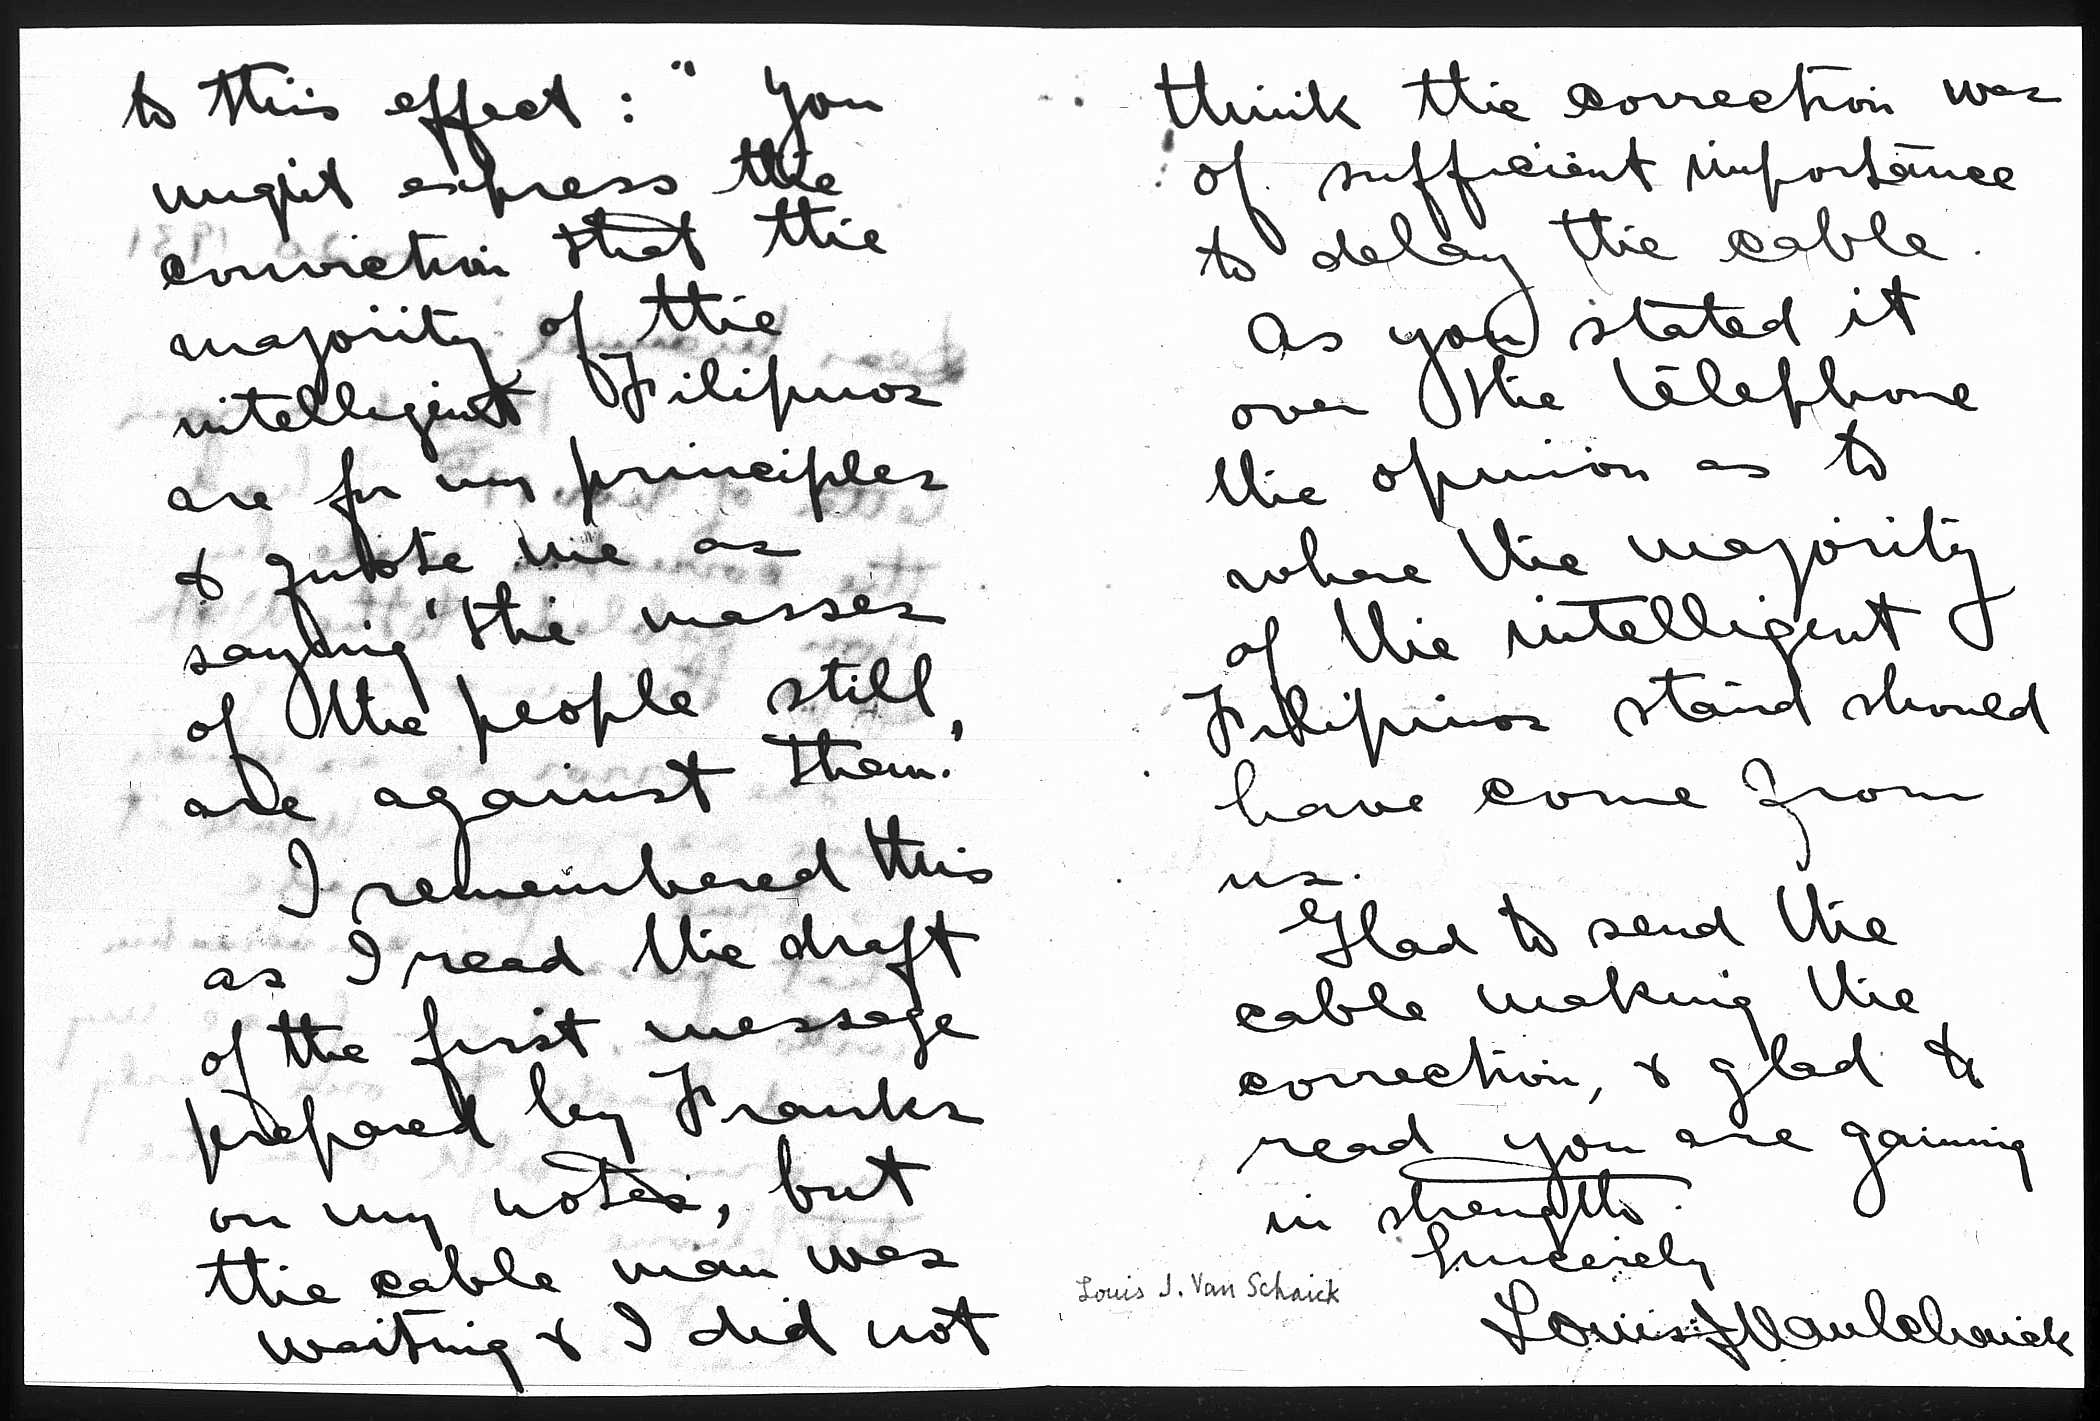 to this effect : " you
might express the
conviction that the
majority of the
intelligent Filipinos
are for my principles
& quote me as
saying 'the masses
of the people still,
are against them.'
I remembered this
as I read the draft
of the first message
prepared by Franks
on my notes, but
the cable man was
waiting & I did not
think the correction was
of sufficient importance
to delay the cable.
As you stated it
over the telephone
the opinion as to
where the majority
of the intelligent
Filipinos stand should
have come from
us.
Glad to send the
cable making the
correction, & glad to
read you are gaining
in strength.
Sincerely
Louis J. Van Schaick
Louis J Van Schaick